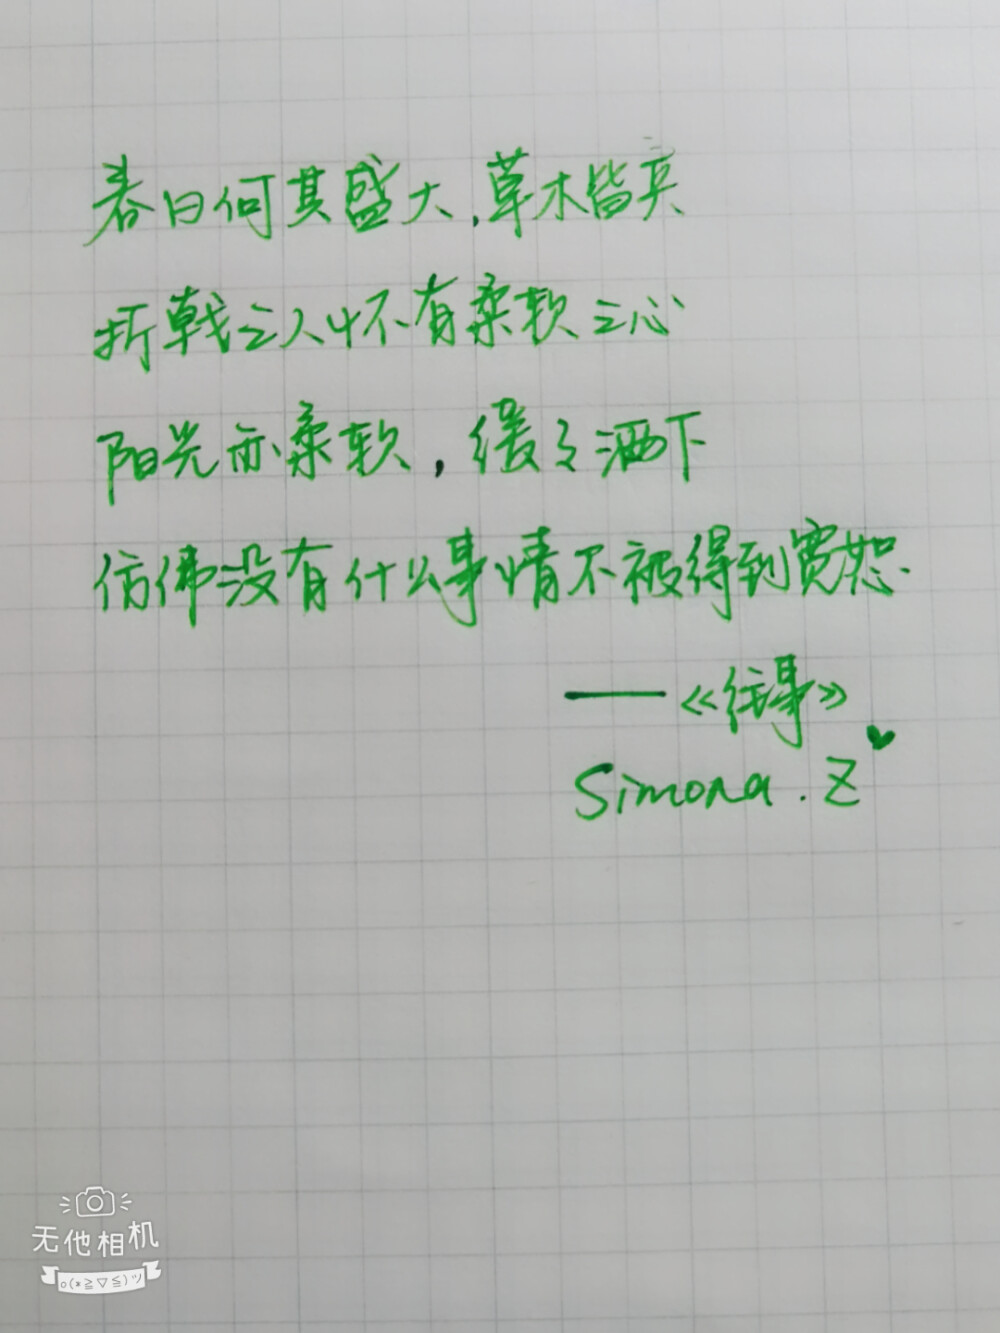 春日何其盛大,草木皆兵
折戟之人怀有柔软之心
阳光亦柔软,缓々洒下
仿佛没有什么事情不被得到宽恕.
——《往事》
Simona.Z
无他相机
o(*≧▽≦)ツ